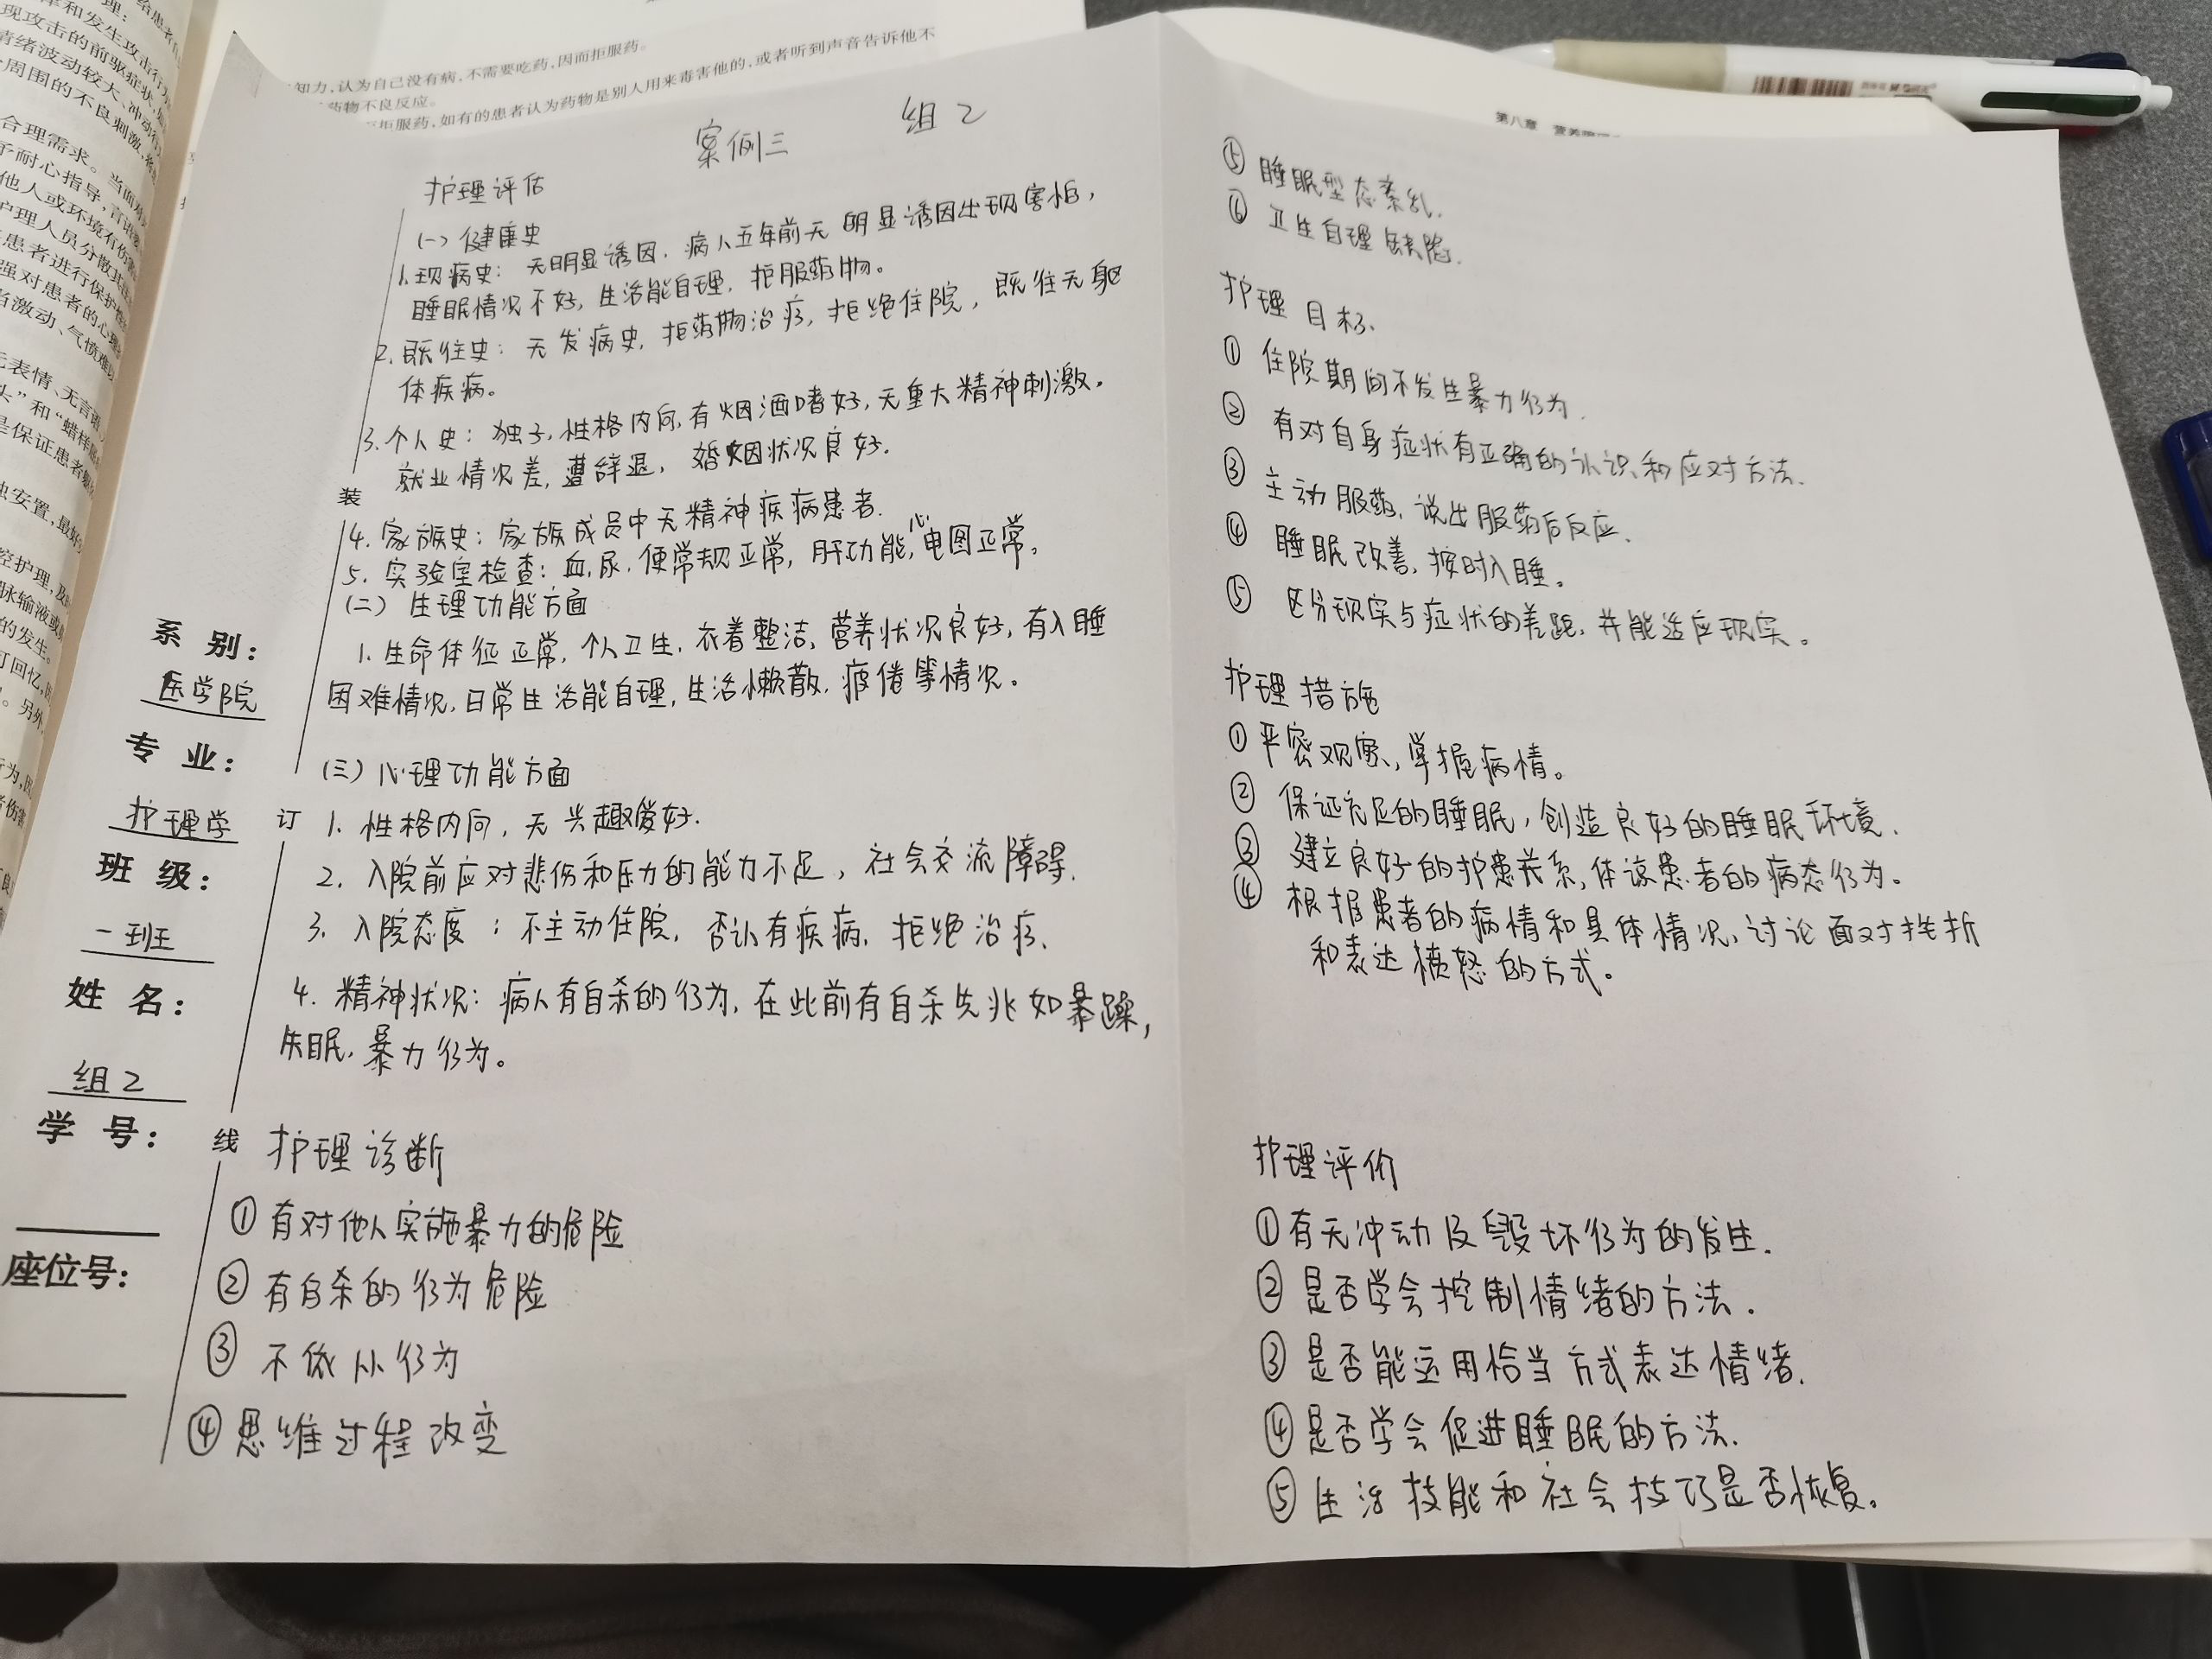 知力,认为自己没有病,不需要吃药,因而拒服药。
药物不良反应。
拒服药,如有的患者认为药物是别人用来毒害他的,或者听到声音告诉他不
第八章
案例三 组2
护理评估
(一)健康史
1.现病史:无明显诱因.病人五年前无明显诱因出现害怕,
睡眠情况不好,生活能自理,拒服药物。
2.既往史:无发病史,拒药物治疗,拒绝住院,既往无躯
体疾病。
3.个人史:独子,性格内向,有烟酒嗜好,无重大精神刺激.
就业情况差,遭辞退,婚姻状况良好.
4.家族史:家族成员中无精神疾病患者.
5.实验室检查:血,尿,便常规正常,肝功能,心电图正常。
(二)生理功能方面
1.生命体征正常,个人卫生,衣着整洁,营养状况良好,有入睡
困难情况,日常生活能自理,生活懒散,疲倦等情况。
(三)心理功能方面
1.性格内向,无兴趣爱好.
2.入院前应对悲伤和压力的能力不足,社会交流障碍.
3.入院态度:不主动住院,否认有疾病,拒绝治疗.
4.精神状况:病人有自杀的行为,在此前有自杀先兆如暴躁,
失眠,暴力行为。
护理诊断
①有对他人实施暴力的危险
②有自杀的行为危险
③不依从行为
④思维过程改变
装
订
线
系别:
医学院
专业:
护理学
班级:
一班
姓名:
组2
学号:
座位号:
⑤睡眠型态紊乱.
⑥卫生自理缺陷.
护理目标
①住院期间不发生暴力行为.
②有对自身症状有正确的认识和应对方法.
③主动服药,说出服药后反应.
④睡眠改善,按时入睡。
⑤区分现实与症状的差距,并能适应现实。
护理措施
①严密观察,掌握病情。
②保证充足的睡眠,创造良好的睡眠环境.
③建立良好的护患关系,体谅患者的病态行为。
④根据患者的病情和具体情况,讨论面对挫折
和表达愤怒的方式。
护理评价
①有无冲动及毁坏行为的发生.
②是否学会控制情绪的方法.
③是否能运用恰当方式表达情绪.
④是否学会促进睡眠的方法.
⑤生活技能和社会技巧是否恢复。